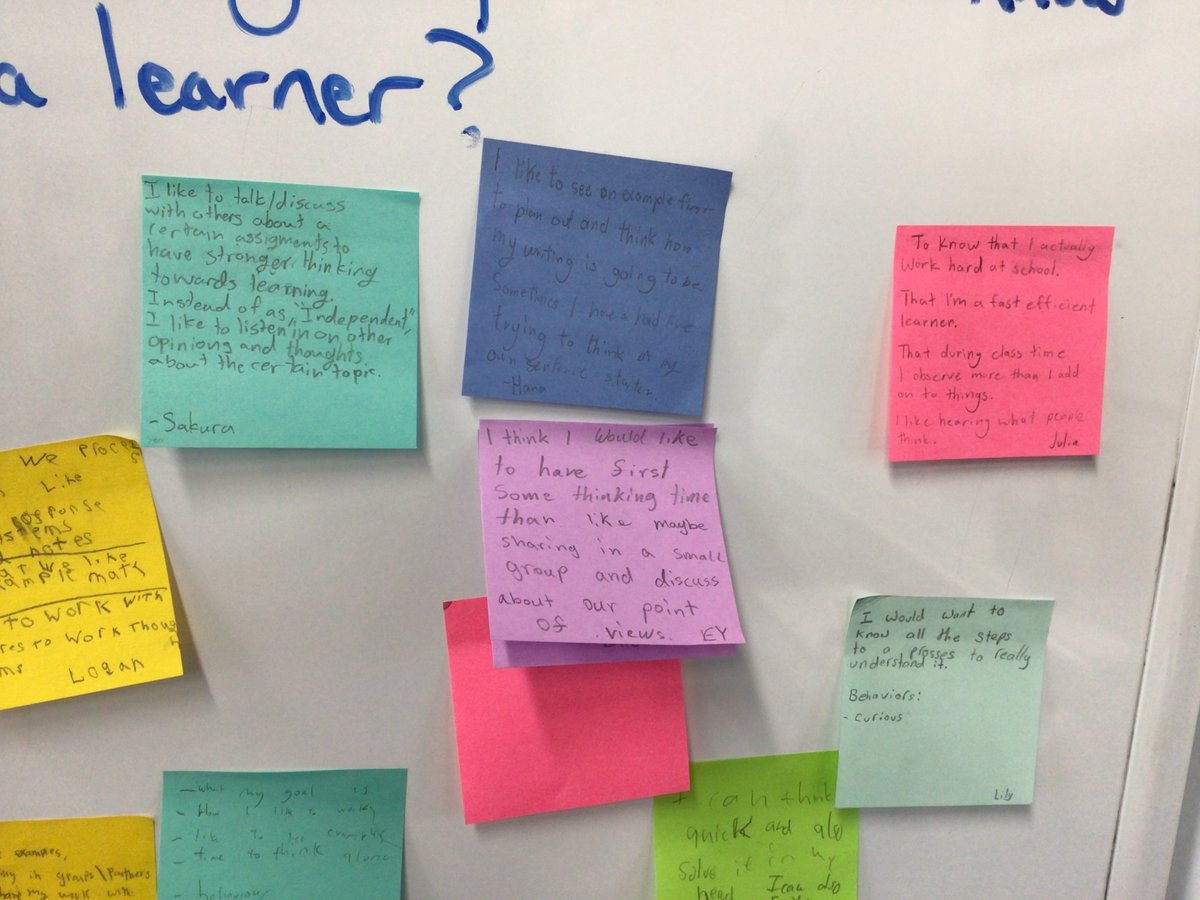 a learner?
I like to talk/discuss
with others about a
certain assigments to
have stronger thinking
towards learning.
Instead of as "Independent",
I like to listen in on other
opinions and thoughts
about the certain topic.
-Sakura
I like to see an example first
to plan out and think how
my writing is going to be
Sometimes I have a hard time
trying to think of my
own sentence starter
-Hana
To know that I actually
work hard at school.
That I'm a fast efficient
learner.
That during class time
I observe more than I add
on to things.
I like hearing what people
think.
Julia
I think I would like
to have first
some thinking time
than like maybe
sharing in a small
group and discuss
about our point
OF views. EY
We
Like
notes
we like
math
TO WORK WITH
to WORK
LOGAN
I would want to
know all the steps
to a prosses to really
understand it.
Behaviors:
- curious
Lily
- what my goal is
- How I like to
- like to see examples
- time to think alone
- behaviour
I can think
quick and also
solve it in my
head I can also
examples,
in groups\partners
my work with